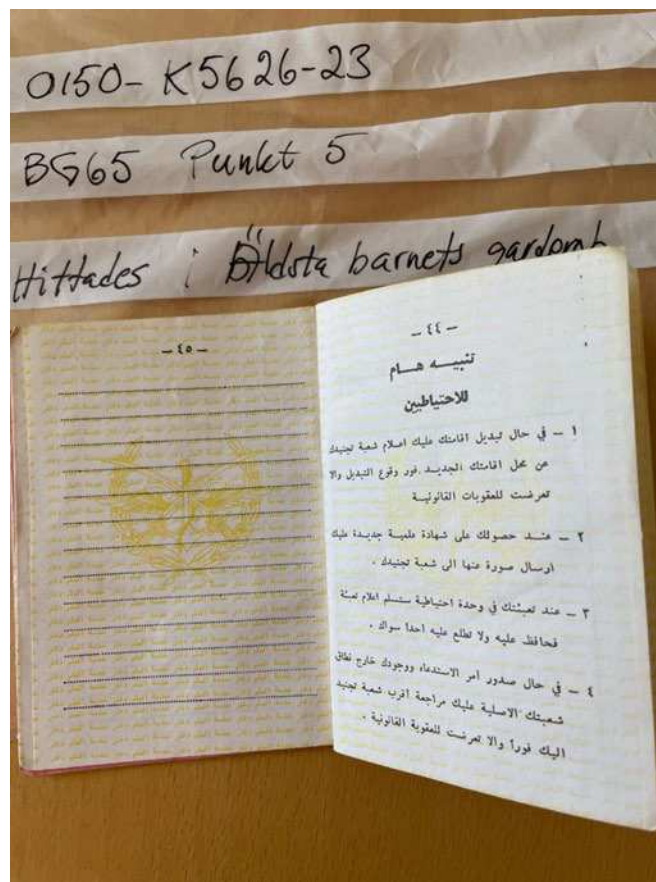 0150-K5626-23
BG65 Punkt 5
Hittades i Äldsta barnets gardomb
- ٤٥ -
- ٤٤ -
تنبيـــه هـــام
للاحتياطيين
١ - في حال تبديل اقامتك عليك اعلام شعبة تجنيدك
عن محل اقامتك الجديـد فور وقوع التبديل والا
تعرضت للعقوبات القانونيـة
٢ - عنـــد حصولك على شهادة علميـة جديـدة عليك
ارسال صورة عنها الى شعبة تجنيدك .
٣ - عند تعبئتك في وحدة احتياطية ستسلم اعلام تعبئة
فحافظ عليه ولا تطلع عليه احداً سواك .
٤ - في حال صدور امر الاستدعاء ووجودك خارج نطاق
شعبتك الاصلية عليك مراجعة أقرب شعبة تجنيد
اليك فوراً والا تعرضت للعقوبة القانونية .